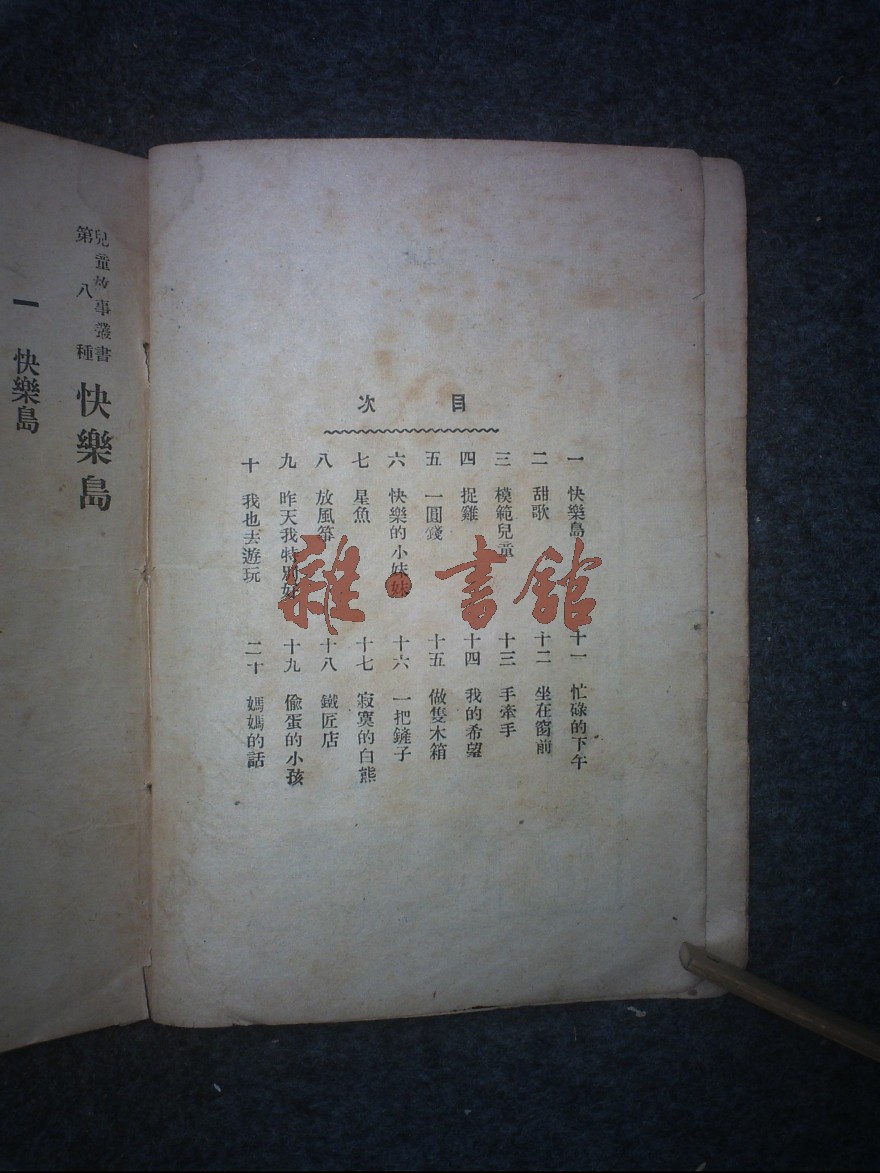 目次
一 快樂島
二 甜歌
三 模範兒童
四 捉雞
五 一圓錢
六 快樂的小妹妹
七 星魚
八 放風箏
九 昨天我特別好
十 我也去遊玩
十一 忙碌的下午
十二 坐在窗前
十三 手牽手
十四 我的希望
十五 做隻木箱
十六 一把鏟子
十七 寂寞的白熊
十八 鐵匠店
十九 偸蛋的小孩
二十 媽媽的話
兒童故事叢書
第八種
快樂島
一 快樂島
雜·書館